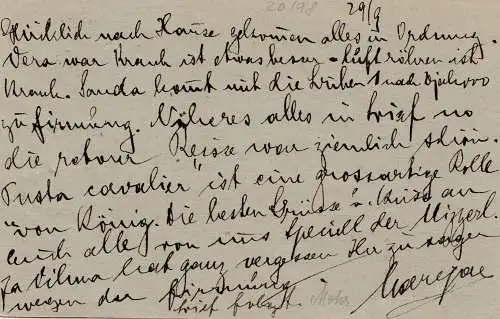 20/98
29/9
Glücklich nach Hause gekommen alles in Ordnung.
Vera war Krank ist etwas besser - luftröhren ist
Krank. Sanda kommt mit die 1 nach
zu firmung. Näheres alles in brief no
die retour Reisse war ziemlich schön.
"Pusta cavalier" ist eine grossartige Rolle
von König. Die besten Grüsse u. Küsse an
euch alle von uns speciell der Mizzerl
Ja Vilma hat ganz vergessen Ihr zu sagen
wegen der Firmung
brief folgt.